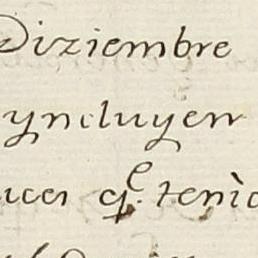 Diziembre
yncluyen
uces q^e. tenia